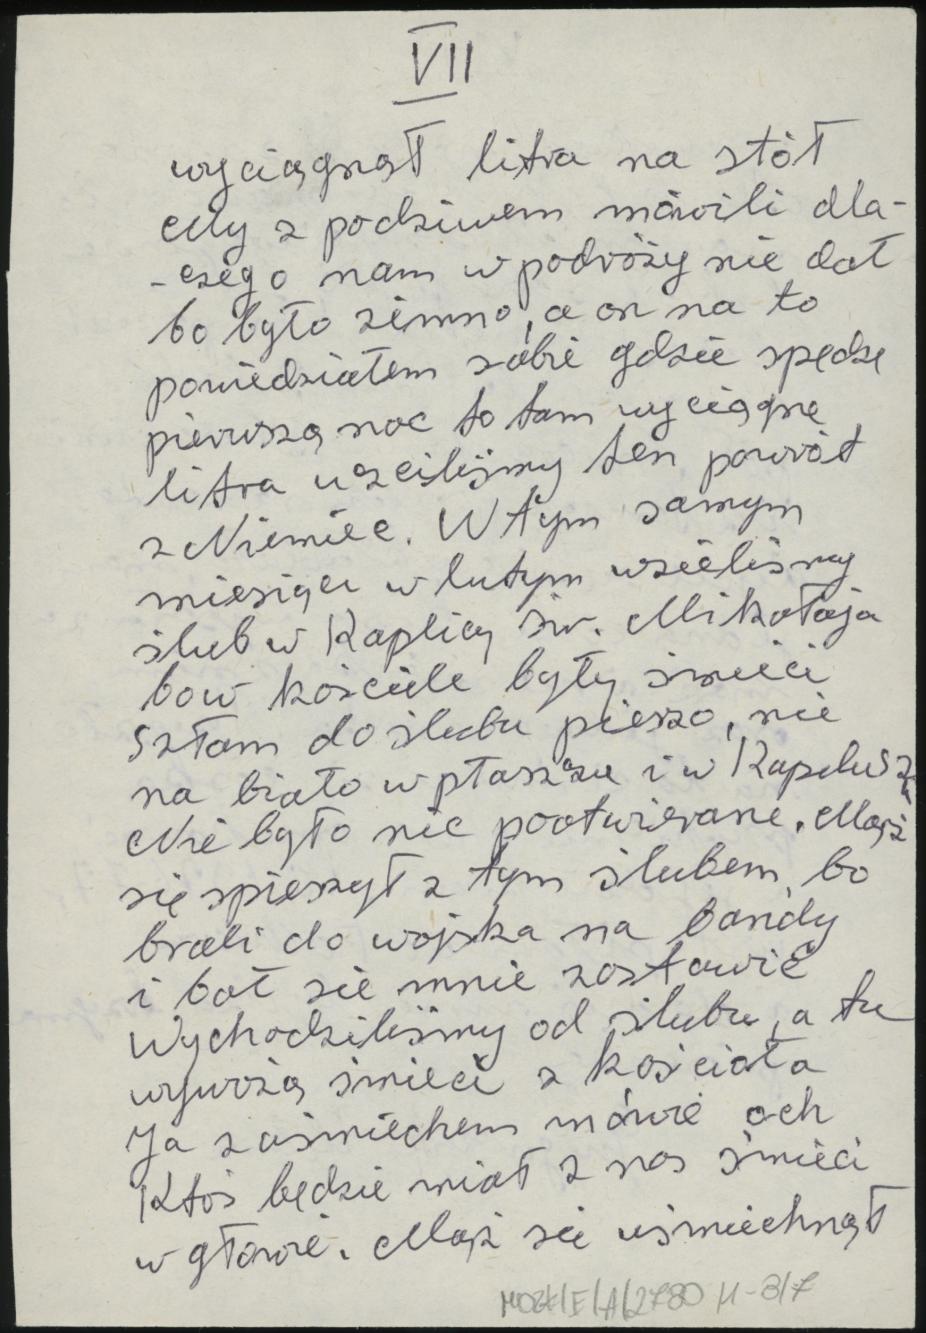 VII
wyciągnął litra na stół
My z podziwem mówili dla-
-czego nam w podróży nie dał
bo było zimno, a on na to
powiedziałem sobie gdzie spędzę
pierwszą noc to tam wyciągnę
litra uczciliśmy ten powrót
z Niemiec. W tym samym
miesiącu w lutym wzieliśmy
ślub w Kaplicy św. Mikołaja
bo w kościele były śmieci
szłam do ślubu pieszo, nie
na biało w płaszczu i w Kapeluszu
Nie było nic pootwierane. Mąż
się spieszył z tym ślubem, bo
brali do wojska na bandy
i bał sie mnie zostawić
Wychodziliśmy od ślubu, a tu
wywożą śmieci z kościoła
Ja z uśmiechem mówie och
Ktoś będzie miał z nas śmieci
w głowie. Mąż sie uśmiechnął